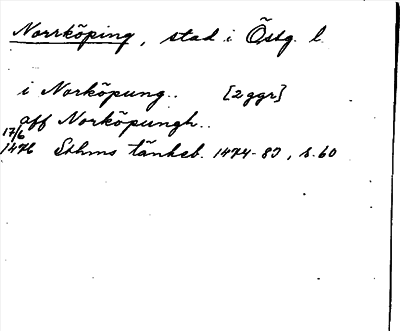 Norrköping, stad i Östg. l.
i Norköpung.. [2 ggr]
aff Norköpungh..
17/6
1476 Sthms tänkeb. 1474-83, s. 60